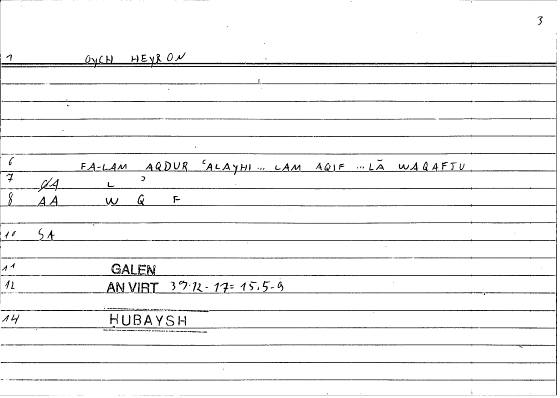 3
1 OYCH HEYRON
6 FA-LAM AQDUR ʿALAYHI ... LAM AQIF ... LĀ WAQAFTU
7 ØA L ʾ
8 AA W Q F
10 SA
11 GALEN
12 AN VIRT 37.12-17= 15.5-9
14 HUBAYSH